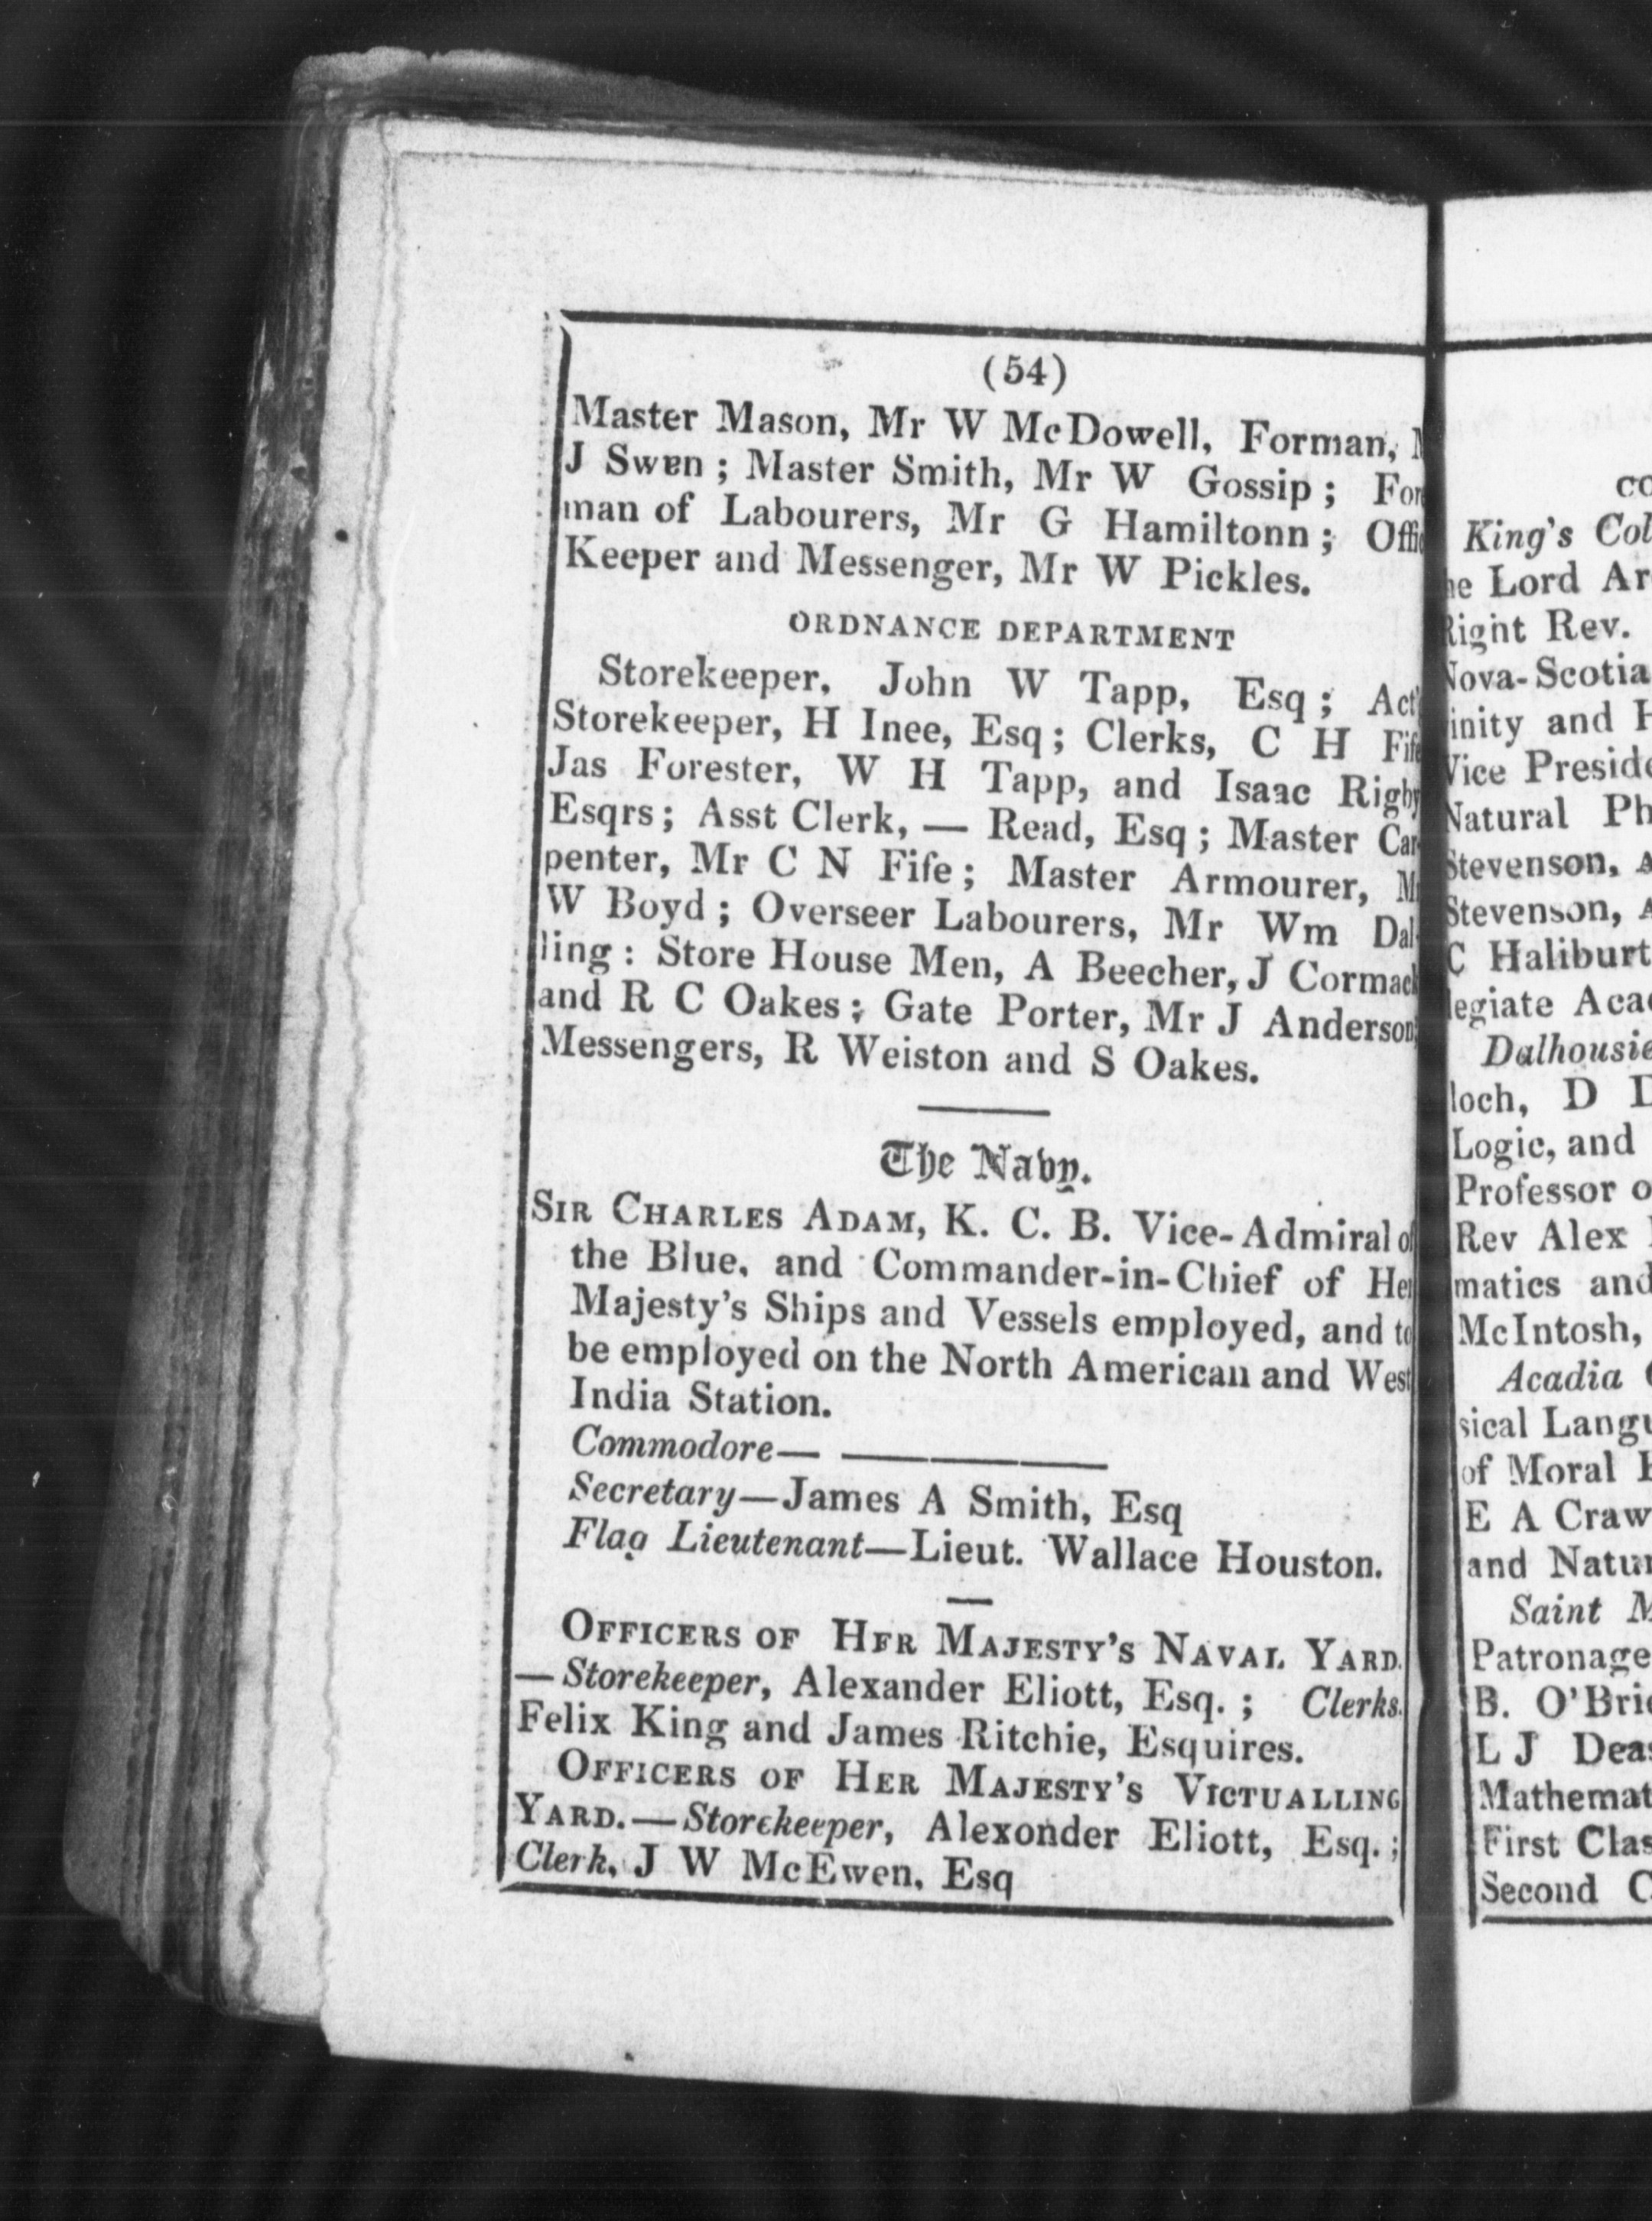 (54)
Master Mason, Mr W McDowell, Forman,
J Swen ; Master Smith, Mr W Gossip ; For
man of Labourers, Mr G Hamiltonn ; Offic
Keeper and Messenger, Mr W Pickles.
ORDNANCE DEPARTMENT
Storekeeper, John W Tapp, Esq ; Act'
Storekeeper, H Inee, Esq ; Clerks, C H Fife
Jas Forester, W H Tapp, and Isaac Rigby
Esqrs ; Asst Clerk, — Read, Esq ; Master Car-
penter, Mr C N Fife ; Master Armourer, Mr
W Boyd ; Overseer Labourers, Mr Wm Dal-
ling : Store House Men, A Beecher, J Cormack
and R C Oakes ; Gate Porter, Mr J Anderson;
Messengers, R Weiston and S Oakes.
The Navy.
SIR CHARLES ADAM, K. C. B. Vice-Admiral of
the Blue, and Commander-in-Chief of Her
Majesty's Ships and Vessels employed, and to
be employed on the North American and West
India Station.
Commodore— ———
Secretary—James A Smith, Esq
Flag Lieutenant—Lieut. Wallace Houston.
OFFICERS OF HER MAJESTY'S NAVAL YARD.
—Storekeeper, Alexander Eliott, Esq. ; Clerks.
Felix King and James Ritchie, Esquires.
OFFICERS OF HER MAJESTY'S VICTUALLING
YARD.—Storekeeper, Alexonder Eliott, Esq. ;
Clerk, J W McEwen, Esq
CO
King's Col
he Lord Ar
Right Rev.
Nova-Scotia
inity and H
Vice Preside
Natural Ph
Stevenson, A
Stevenson, A
C Haliburt
legiate Aca
Dalhousie
loch, D D
Logic, and
Professor o
Rev Alex
matics and
McIntosh,
Acadia
sical Langu
of Moral
E A Craw
and Natur
Saint M
Patronage
B. O'Brie
L J Deas
Mathemat
First Clas
Second C